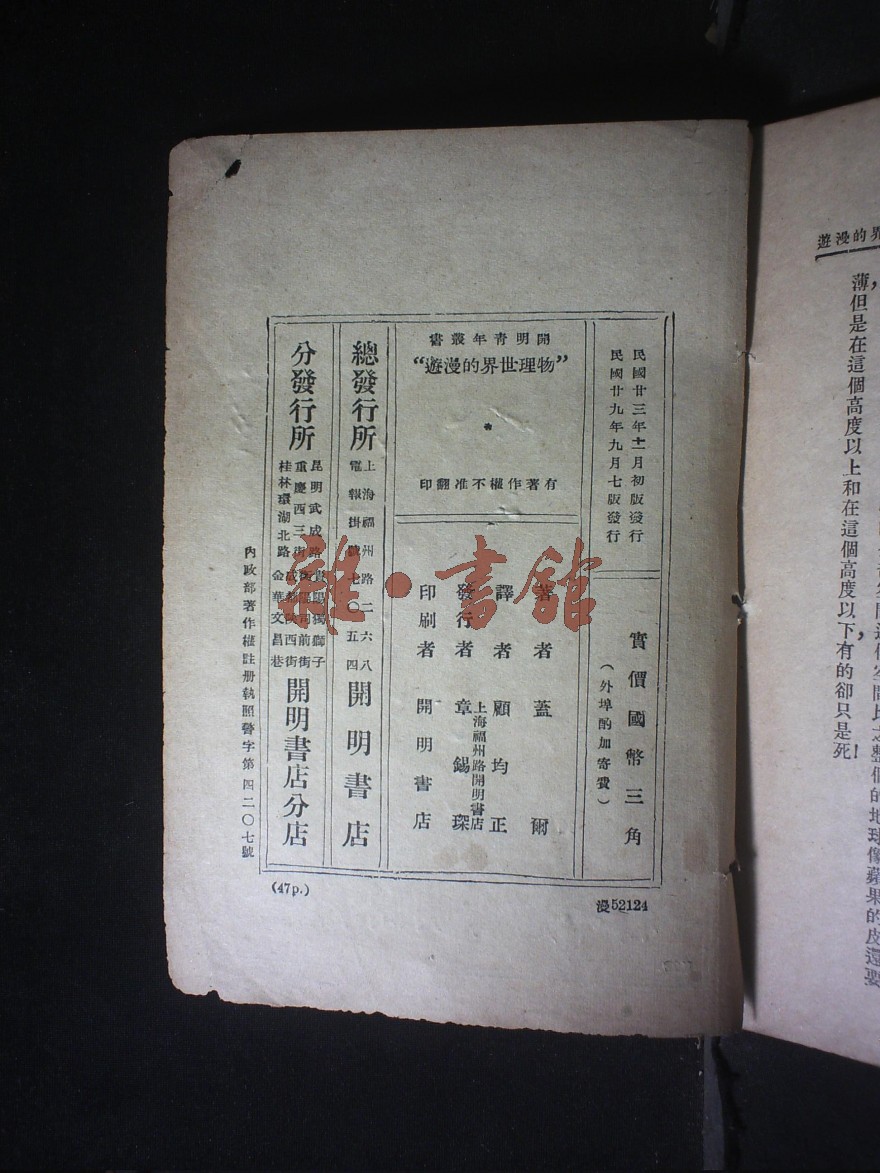 民國廿三年十一月初版發行
民國廿九年九月七版發行
實價國幣三角
(外埠酌加寄費)
開明青年叢書
“物理世界的漫遊”
有著作權不准翻印
著者 蓋爾
譯者 顧均正
發行者 章錫琛
上海福州路開明書店
印刷者 開明書店
總發行所
上海福州路二六八
電報掛號七〇五四
開明書店
分發行所
昆明武成路 貴陽獨獅子
重慶西三街 成都陝西街
桂林環湖北路 金華文昌巷
開明書店分店
內政部著作權註冊執照警字第四二〇七號
(47p.)
漫52124
雜·書館
的漫遊
薄但是在這個高度以上和在這個高度以下有的卻只是死!